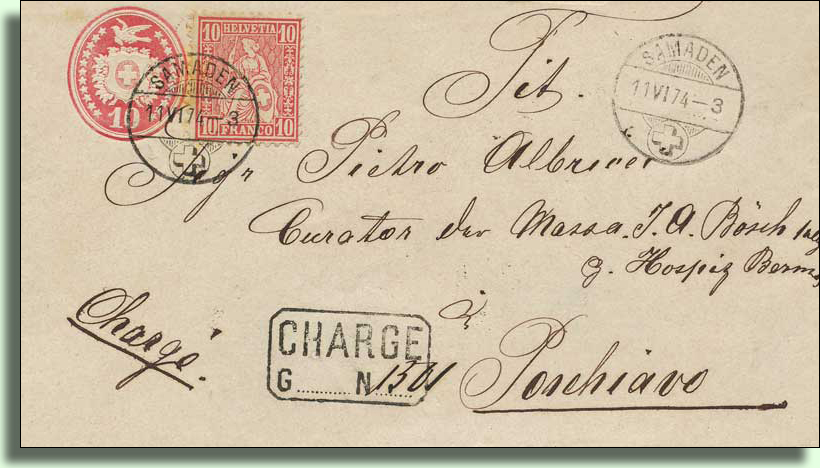 10
10 HELVETIA 10
10 FRANCO 10
SAMADEN
11 VI 74 – 3
SAMADEN
11 VI 74 – 3
Tit.
Sigr Pietro Albricci
Curator der Massa J. A. Bösch
z. Hospiz
à
Poschiavo
Chargé.
CHARGE
G. N. 1501